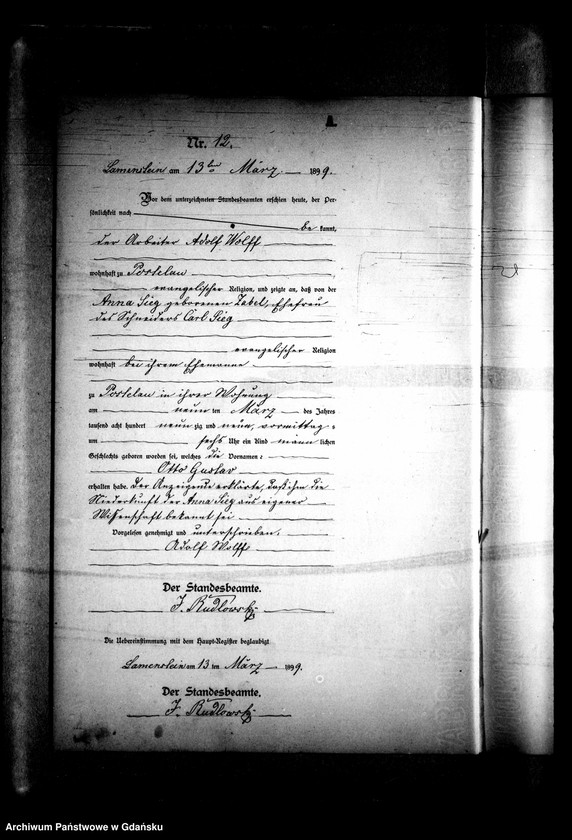 Nr. 12.
Lamenstein am 13ten März 1899.
Vor dem unterzeichneten Standesbeamten erschien heute, der Per-
sönlichkeit nach
be kannt,
der Arbeiter Adolf Wolff
wohnhaft zu Postelau
evangelischer Religion, und zeigte an, daß von der
Anna Sieg geborenen Zabel, Ehefrau
des Schneiders Carl Sieg
evangelischer Religion
wohnhaft bei ihrem Ehemanne
zu Postelau in ihrer Wohnung
am neun ten März des Jahres
tausend acht hundert neun zig und neun, vormittags
um sechs Uhr ein Kind männ lichen
Geschlechts geboren worden sei, welches die Vornamen:
Otto Gustav
erhalten habe. Der Anzeigende erklärte, daß ihm die
Niederkunft der Anna Sieg aus eigener
Wissenschaft bekannt sei
Vorgelesen genehmigt und unterschrieben.
Adolf Wolff
Der Standesbeamte.
J. Rudlowski
Die Uebereinstimmung mit dem Haupt-Register beglaubigt
Lamenstein am 13 ten März 1899.
Der Standesbeamte.
J. Rudlowski
Archiwum Państwowe w Gdańsku